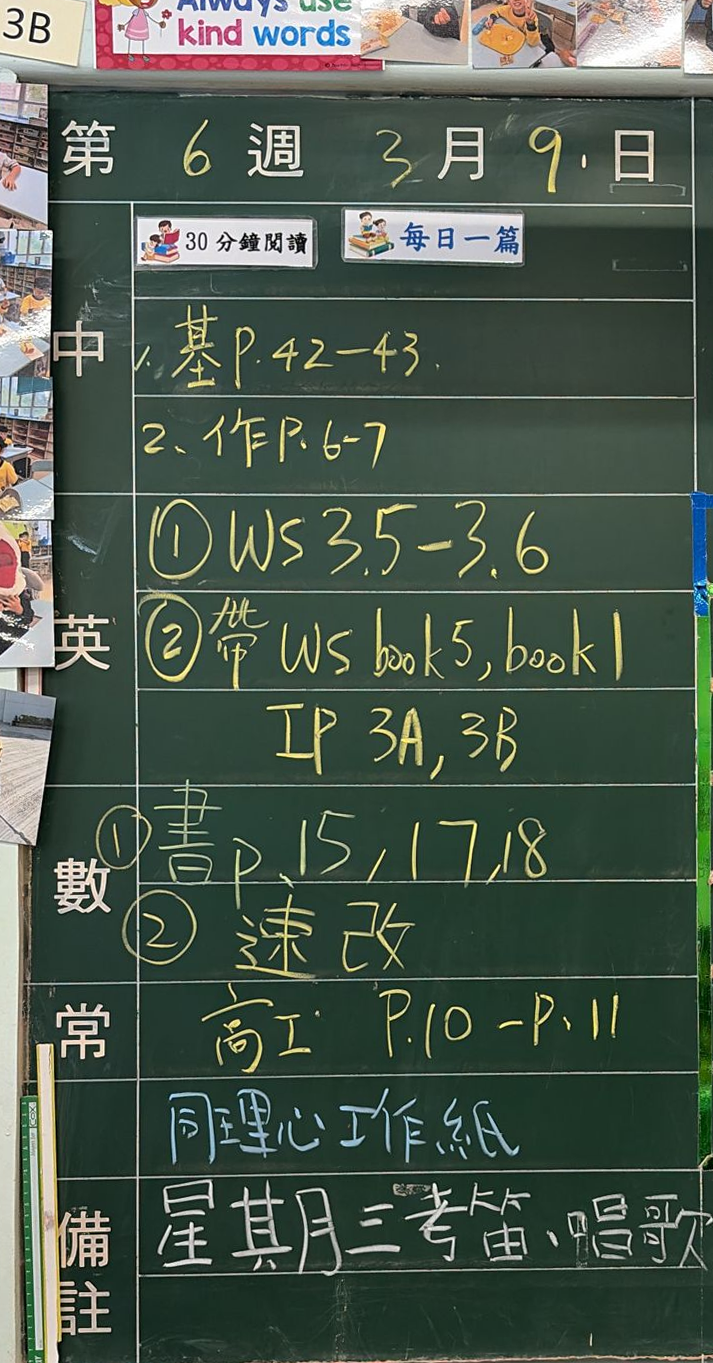 3B
Always use
kind words
第 6 週 3 月 9 日
30 分鐘閱讀 每日一篇
中
1. 基 P. 42-43.
2、作 P. 6-7
英
① WS 3.5-3.6
② 帶 WS book 5, book 1
IP 3A, 3B
數
① 書 p、15, 17, 18
② 速改
常
高工 P.10 - P、11
同理心工作紙
備註
星其月三考笛、唱歌